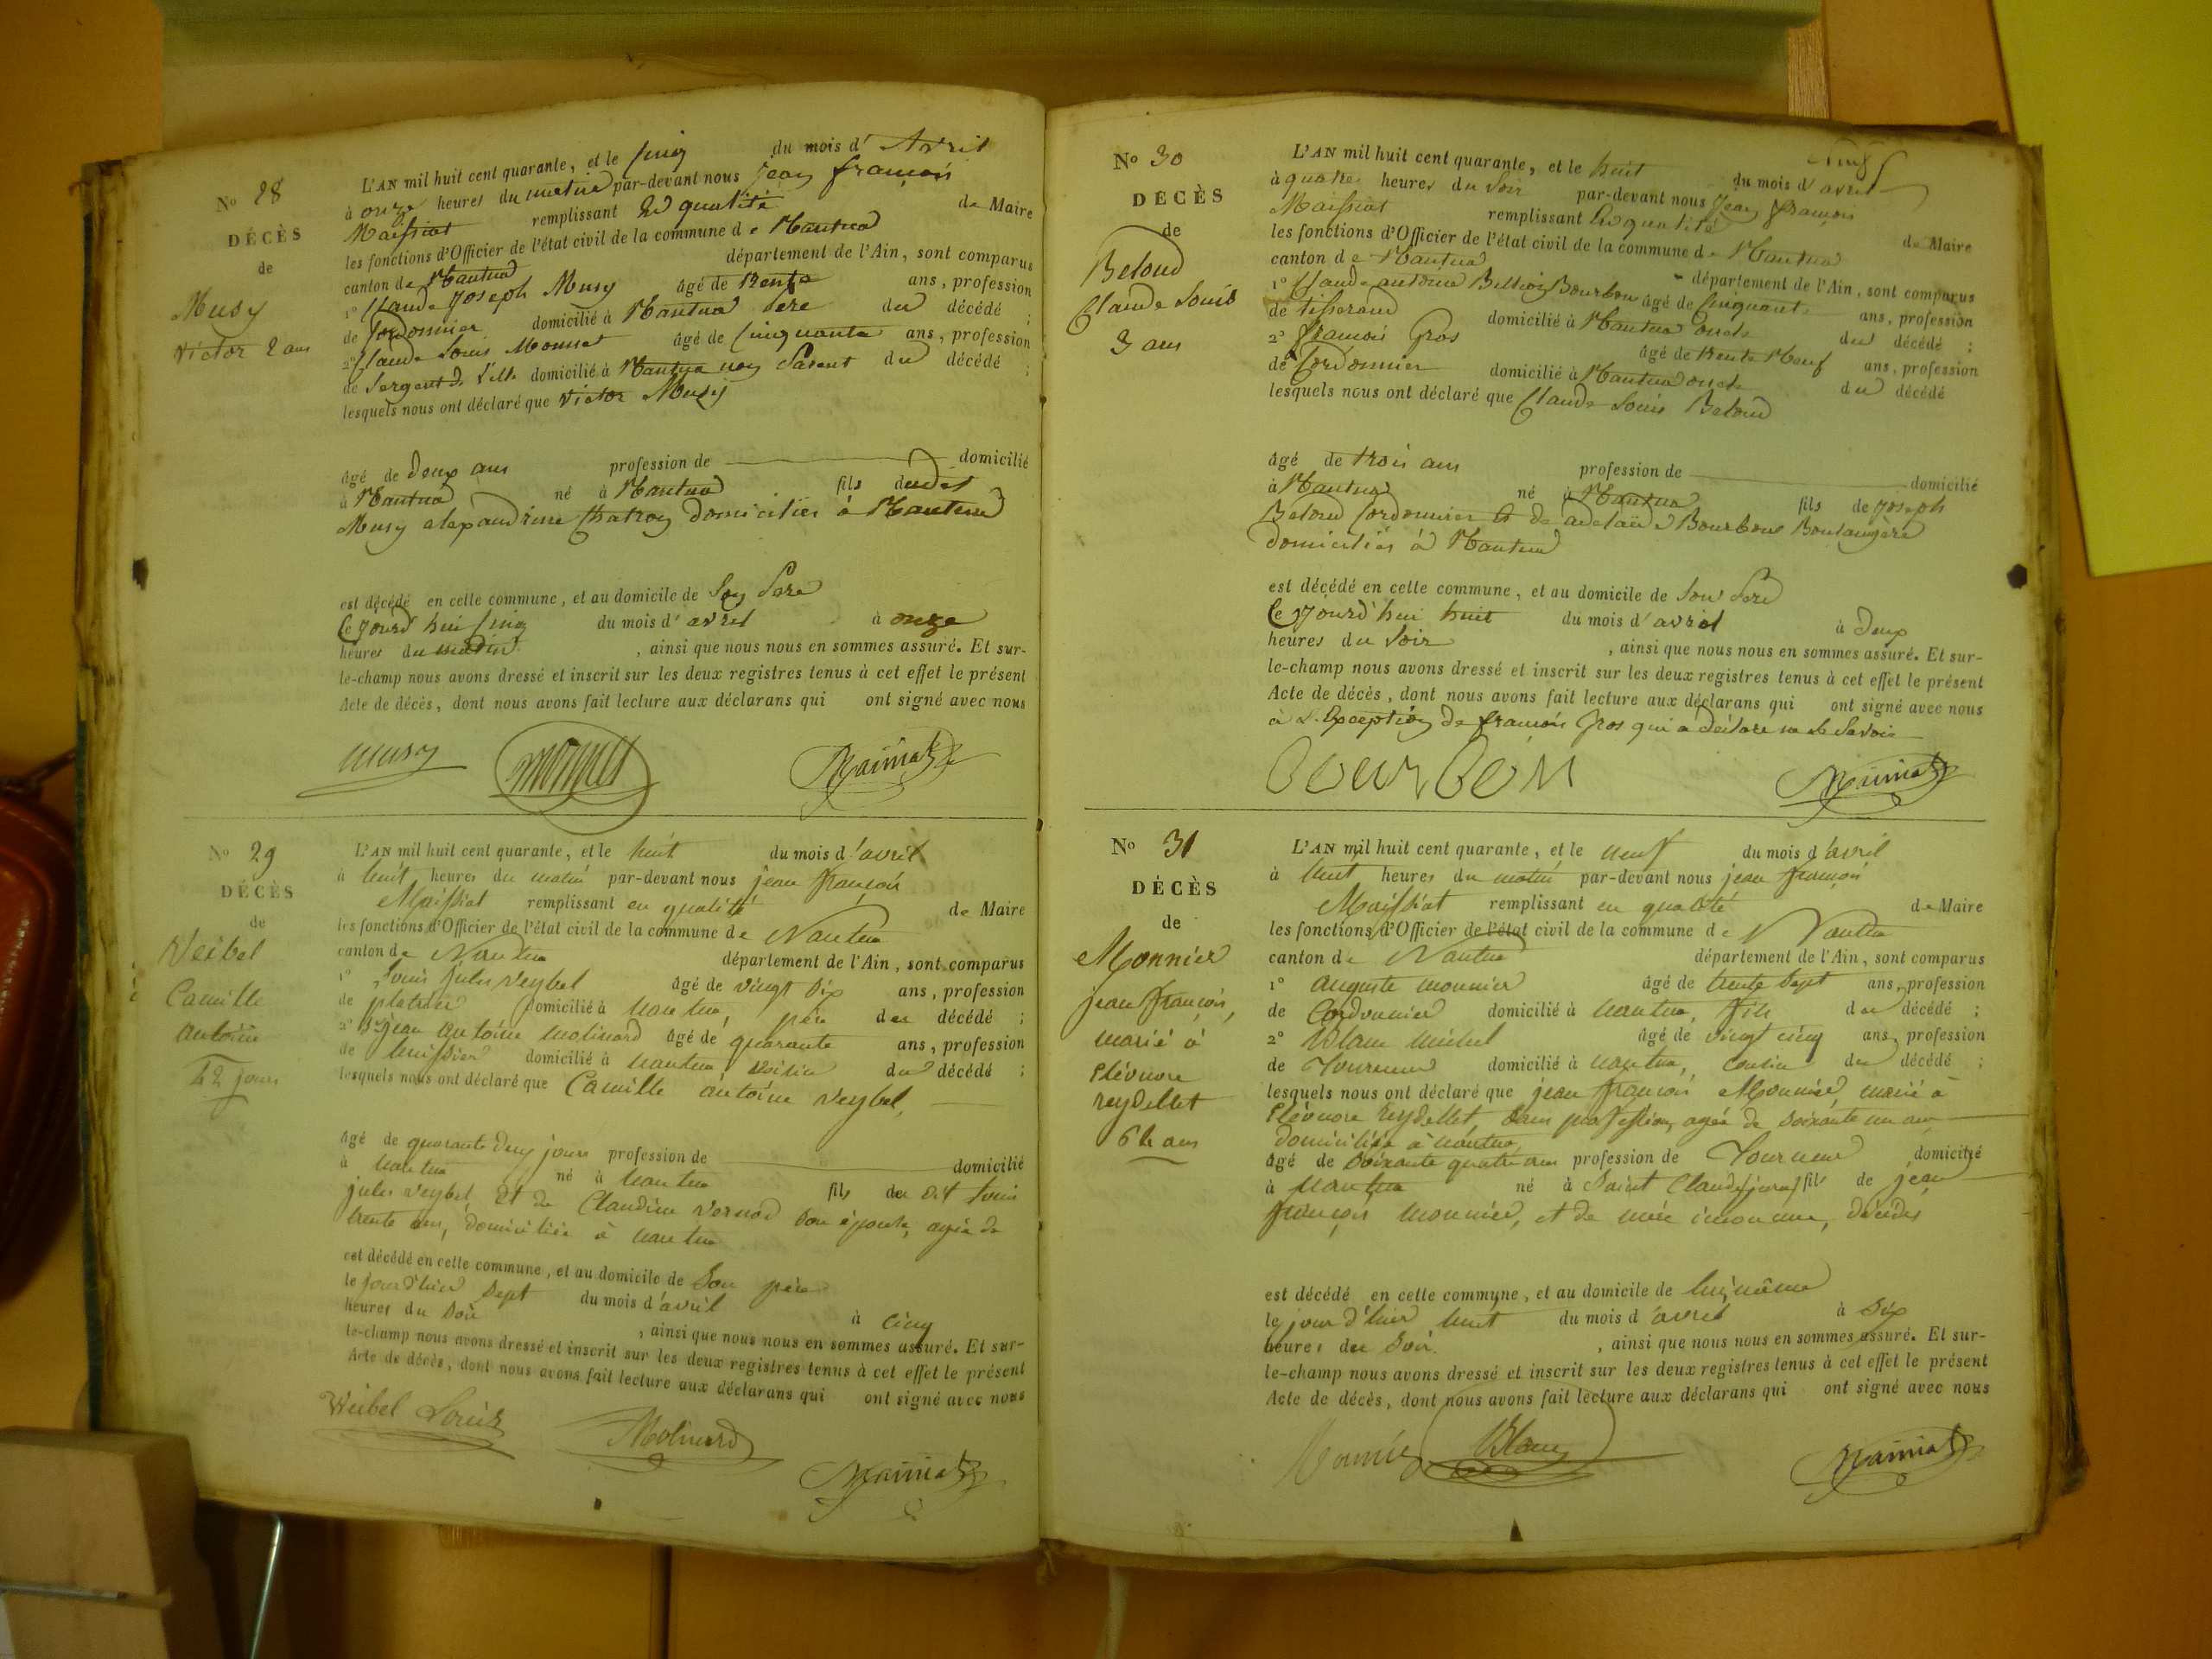 No 28
DÉCÈS
de
Musy
Victor 2 ans
L'AN mil huit cent quarante, et le cinq du mois d'Avril
à onze heures du matin par-devant nous jean françois
Maissiat remplissant en qualité de Maire
les fonctions d'Officier de l'état civil de la commune de Nantua
canton de Nantua département de l'Ain, sont comparus
1° Claude Joseph Musy âgé de trente ans, profession
de Cordonnier domicilié à Nantua Pere du décédé ;
2° Claude Louis Monnet âgé de Cinquante ans, profession
de Sergent de Ville domicilié à Nantua non Parent du décédé ;
lesquels nous ont déclaré que Victor Musy
âgé de deux ans profession de domicilié
à Nantua né à Nantua fils dudit
Musy alexandrine Chatron domiciliés à Nantua
est décédé en cette commune, et au domicile de Son Pere
Cejourd'hui Cinq du mois d'avril à onze
heures du matin , ainsi que nous nous en sommes assuré. Et sur-
le-champ nous avons dressé et inscrit sur les deux registres tenus à cet effet le présent
Acte de décès, dont nous avons fait lecture aux déclarans qui ont signé avec nous
musy monnet Maissiat
No 29
DÉCÈS
de
Veibel
Camille
antoine
42 jours
L'AN mil huit cent quarante, et le huit du mois d'avril
à huit heures du matin par-devant nous jean françois
Maissiat remplissant en qualité de Maire
les fonctions d'Officier de l'état civil de la commune de Nantua
canton de Nantua département de l'Ain, sont comparus
1° Louis jules veybel âgé de vingt six ans, profession
de platrier domicilié à nantua, père du décédé ;
2° jean antoine molinard âgé de quarante ans, profession
de huissier domicilié à nantua voisin du décédé ;
lesquels nous ont déclaré que Camille antoine veybel,
âgé de quarante deux jours profession de domicilié
à nantua né à nantua fils du dit Louis
jules veybel, et de Claudine vernod son épouse, agée de
trente ans, domiciliée à nantua
est décédé en cette commune, et au domicile de Son père
le jour d'hier Sept du mois d'avril à cinq
heures du Soir , ainsi que nous nous en sommes assuré. Et sur-
le-champ nous avons dressé et inscrit sur les deux registres tenus à cet effet le présent
Acte de décès, dont nous avons fait lecture aux déclarans qui ont signé avec nous
Weibel Louis Molinard Maissiat
No 30
DÉCÈS
de
Beloud
Claude Louis
3 ans
L'AN mil huit cent quarante, et le huit du mois d'avril
à quatre heures du Soir par-devant nous Jean françois
Maissiat remplissant en qualité de Maire
les fonctions d'Officier de l'état civil de la commune de Nantua
canton de Nantua département de l'Ain, sont comparus
1° Claude antoine Bourbon âgé de Cinquante ans, profession
de tisserand domicilié à Nantua oncle du décédé ;
2° françois Gros âgé de trente Neuf ans, profession
de Cordonnier domicilié à Nantua oncle du décédé
lesquels nous ont déclaré que Claude Louis Beloud
âgé de trois ans profession de domicilié
à Nantua né à Nantua fils de Joseph
Beloud Cordonnier et de adelaïde Bourbon Boulangère
domiciliés à Nantua
est décédé en cette commune, et au domicile de Son Pere
Cejourd'hui huit du mois d'avril à deux
heures du Soir , ainsi que nous nous en sommes assuré. Et sur-
le-champ nous avons dressé et inscrit sur les deux registres tenus à cet effet le présent
Acte de décès, dont nous avons fait lecture aux déclarans qui ont signé avec nous
à L'Exception de françois Gros qui a déclaré ne le Savoir
bourbon Maissiat
No 31
DÉCÈS
de
Monnier
jean françois,
marié à
Pléonore
reydellet
64 ans
L'AN mil huit cent quarante, et le neuf du mois d'avril
à huit heures du matin par-devant nous jean françois
Maissiat remplissant en qualité de Maire
les fonctions d'Officier de l'état civil de la commune de Nantua
canton de Nantua département de l'Ain, sont comparus
1° auguste monnier âgé de trente Sept ans, profession
de Cordonnier domicilié à nantua, fils du décédé ;
2° Blanc michel âgé de vingt cinq ans, profession
de Tourneur domicilié à nantua, cousin du décédé ;
lesquels nous ont déclaré que jean françois Monnier, marié à
Pléonore Reydellet, Sans profession, agée de soixante un ans
domiciliée à nantua
âgé de Soixante quatre ans profession de Tourneur domicilié
à Nantua né à Saint Claude (jura) fils de jean
françois monnier, et de mère inconnue, décédés
est décédé en cette commune, et au domicile de lui même
le jour d'hier huit du mois d'avril à Six
heures du Soir. , ainsi que nous nous en sommes assuré. Et sur-
le-champ nous avons dressé et inscrit sur les deux registres tenus à cet effet le présent
Acte de décès, dont nous avons fait lecture aux déclarans qui ont signé avec nous
Monnier Blanc Maissiat